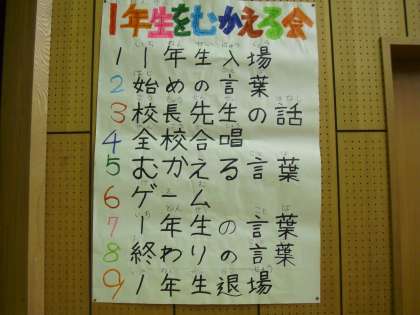 1年生をむかえる会
1 1年生入場
2 始めの言葉
3 校長先生の話
4 全校合唱
5 むかえる言葉
6 ゲーム
7 1年生の言葉
8 終わりの言葉
9 1年生退場